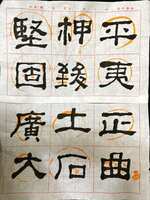 平夷正曲
柙致土石
堅固廣大